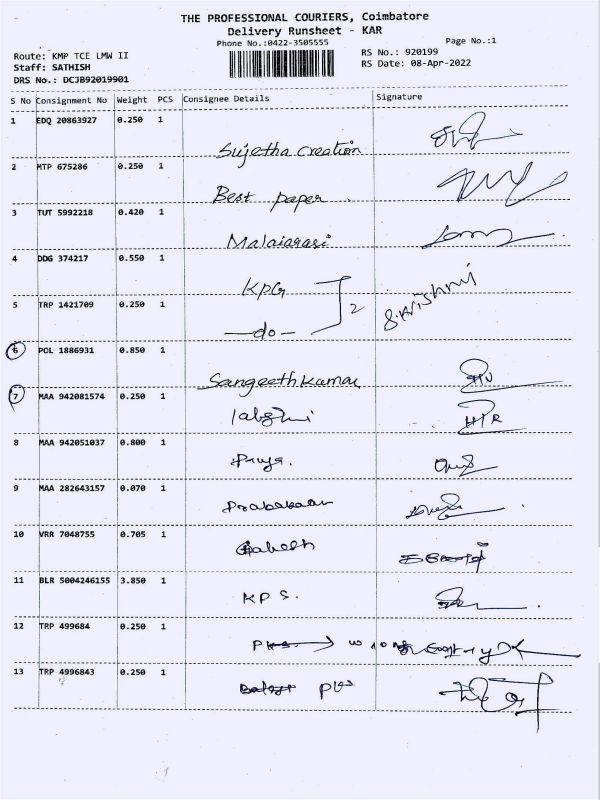 THE PROFESSIONAL COURIERS, Coimbatore
Delivery Runsheet - KAR
Phone No.:0422-3505555
Page No.:1
Route: KMP TCE LMW II
Staff: SATHISH
DRS No.: DCJB92019901
RS No.: 920199
RS Date: 08-Apr-2022
S No Consignment No Weight PCS Consignee Details Signature
1 EDQ 20863927 0.250 1 Sujetha Creation
2 MTP 675286 0.250 1 Best paper
3 TUT 5992218 0.420 1 Malaiarasi
4 DDG 374217 0.550 1 KPG
5 TRP 1421709 0.250 1 —do— 2
6 POL 1886931 0.850 1 Sangeeth Kumar
7 MAA 942081574 0.250 1 H/R
8 MAA 942051037 0.800 1 Priya.
9 MAA 282643157 0.070 1 Prabakaran
10 VRR 7048755 0.705 1
11 BLR 5004246155 3.850 1 KPS.
12 TRP 499684 0.250 1 wrong entry
13 TRP 4996843 0.250 1